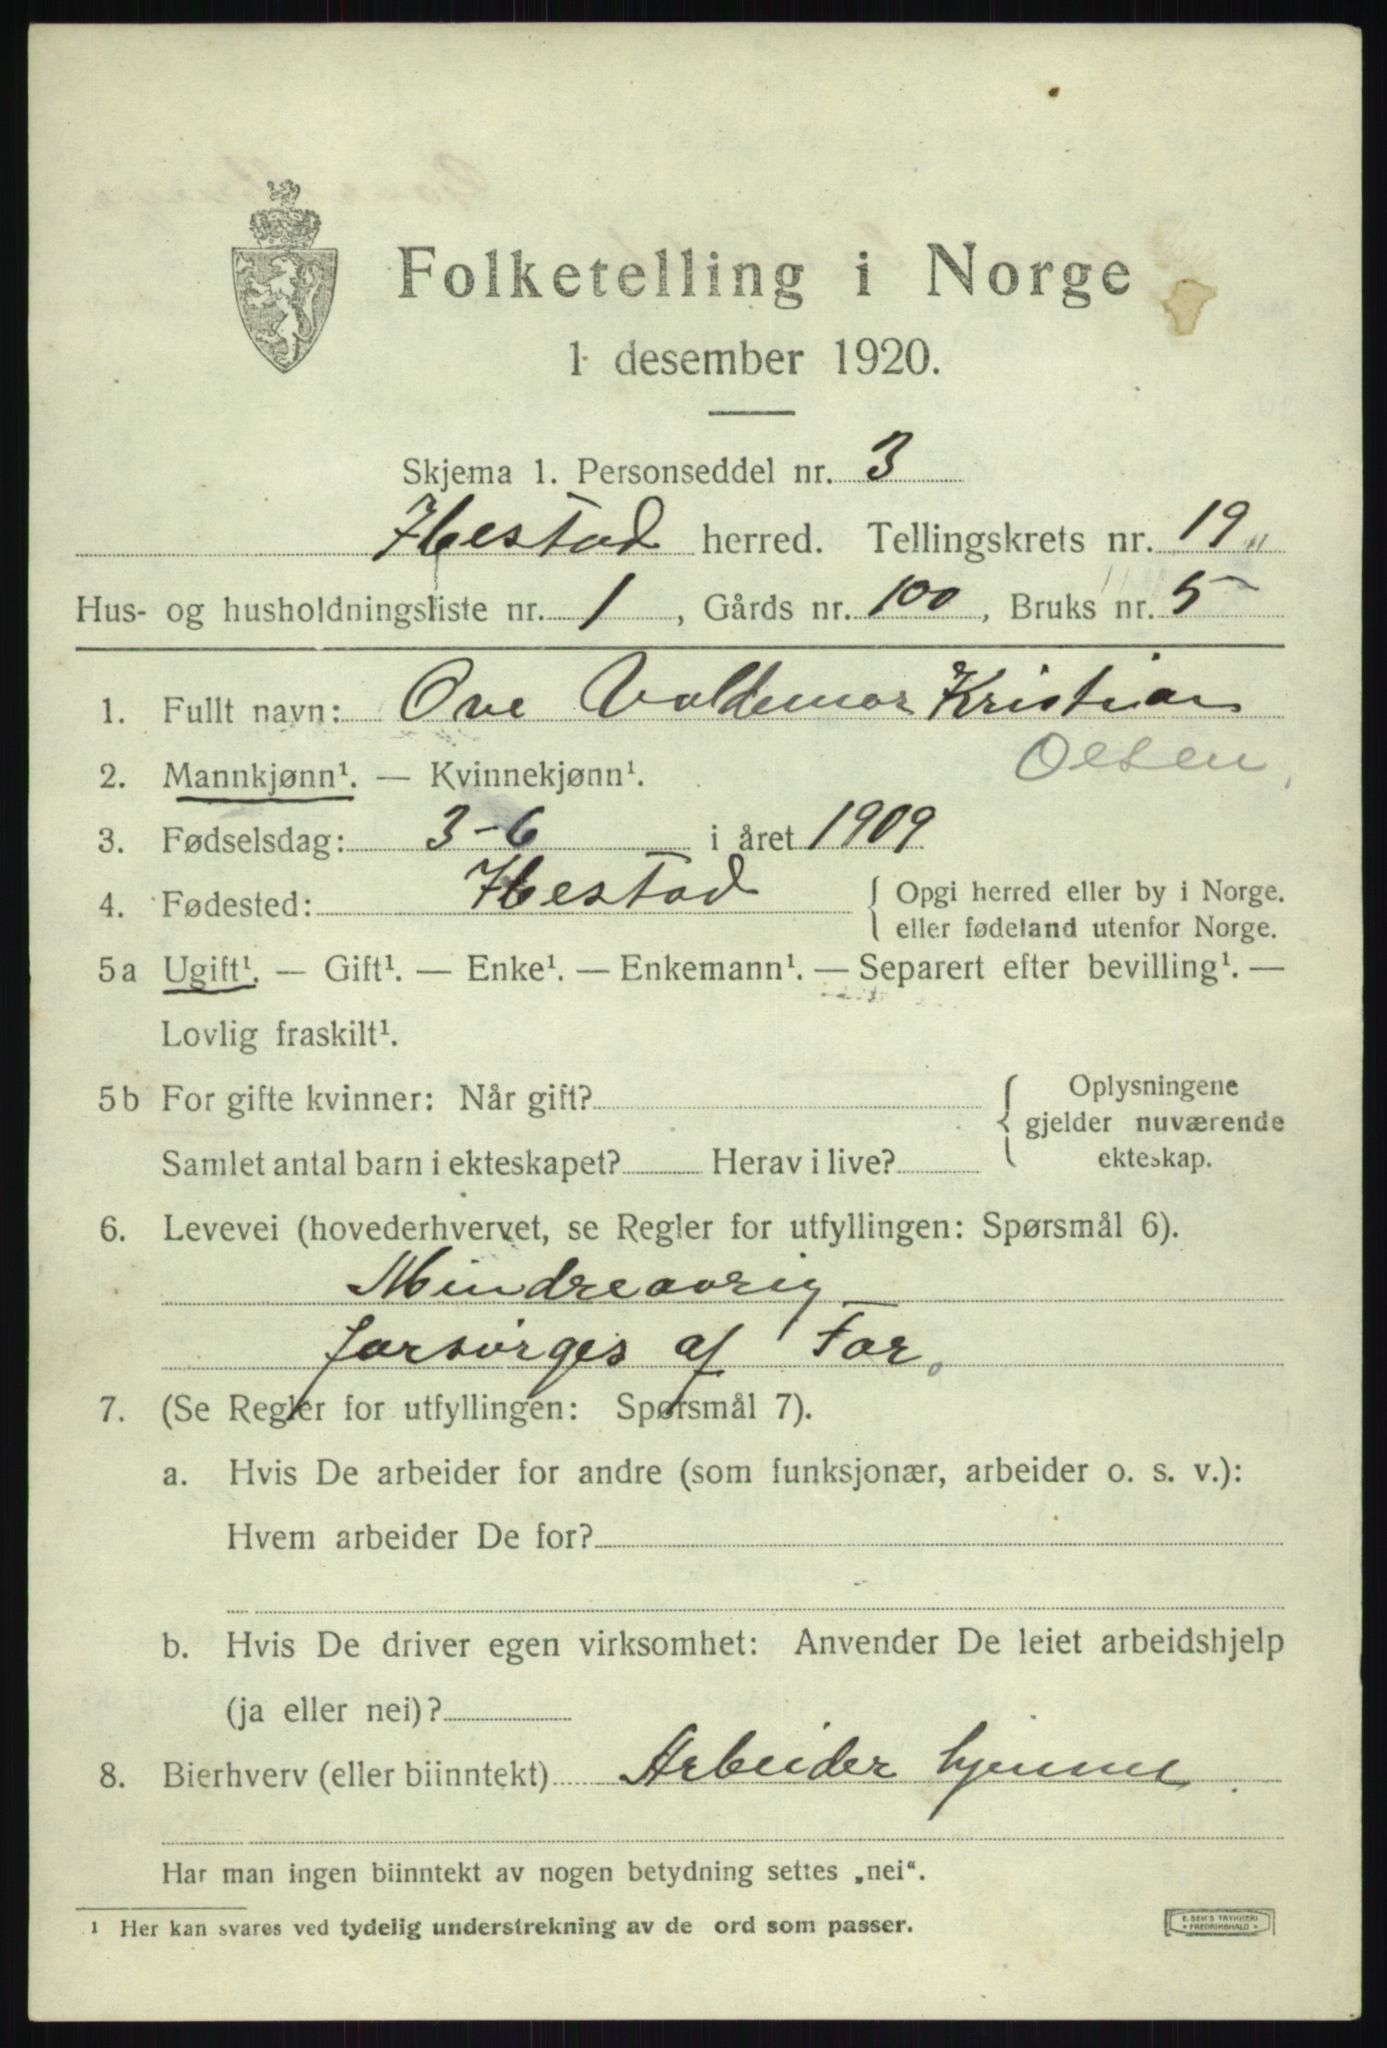 Folketelling i Norge
1 desember 1920.
Skjema 1. Personseddel nr. 3
Ibestad herred. Tellingskrets nr. 19 „
Hus- og husholdningsliste nr. 1, Gårds nr. 100, Bruks nr. 5
1. Fullt navn: Ove Valdemar Kristian
Olsen
2. Mannkjønn¹. — Kvinnekjønn¹.
3. Fødselsdag: 3-6 i året 1909
4. Fødested: Ibestad { Opgi herred eller by i Norge.
eller fødeland utenfor Norge.
5a Ugift¹. — Gift¹. — Enke¹. — Enkemann¹. — Separert efter bevilling¹. —
Lovlig fraskilt¹.
5b For gifte kvinner: Når gift? { Oplysningene
gjelder nuværende
Samlet antal barn i ekteskapet? Herav i live? ekteskap.
6. Levevei (hovederhvervet, se Regler for utfyllingen: Spørsmål 6).
Mindreaarig
forsørges af Far.
7. (Se Regler for utfyllingen: Spørsmål 7).
a. Hvis De arbeider for andre (som funksjonær, arbeider o. s. v.):
Hvem arbeider De for?
b. Hvis De driver egen virksomhet: Anvender De leiet arbeidshjelp
(ja eller nei)?
8. Bierhverv (eller biinntekt) Arbeider hjemme.
Har man ingen biinntekt av nogen betydning settes „nei“.
¹ Her kan svares ved tydelig understrekning av de ord som passer.
E. SEM'S TRYKKERI
FREDRIKSHALD